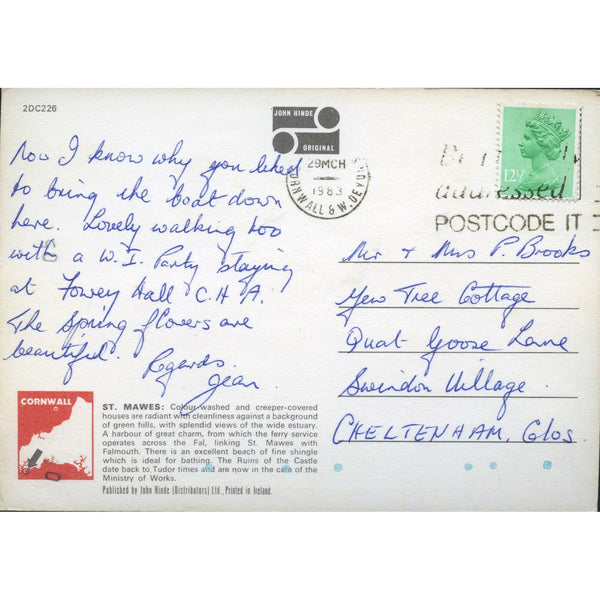 2DC226
JOHN HINDE
ORIGINAL
29MCH
1983
CORNWALL & W. DEVON
12½
addressed
POSTCODE IT
Now I know why you liked
to bring the boat down
here. Lovely walking too
with a W.I. Party staying
at Fowey Hall C.H.A.
The Spring flowers are
beautiful. Regards
Jean.
Mr + Mrs P. Brooks
Yew Tree Cottage
Quat Goose Lane
Swindon Village
CHELTENHAM, Glos.
CORNWALL
ST. MAWES: Colour-washed and creeper-covered
houses are radiant with cleanliness against a background
of green hills, with splendid views of the wide estuary.
A harbour of great charm, from which the ferry service
operates across the Fal, linking St. Mawes with
Falmouth. There is an excellent beach of fine shingle
which is ideal for bathing. The Ruins of the Castle
date back to Tudor times and are now in the care of the
Ministry of Works.
Published by John Hinde (Distributors) Ltd., Printed in Ireland.